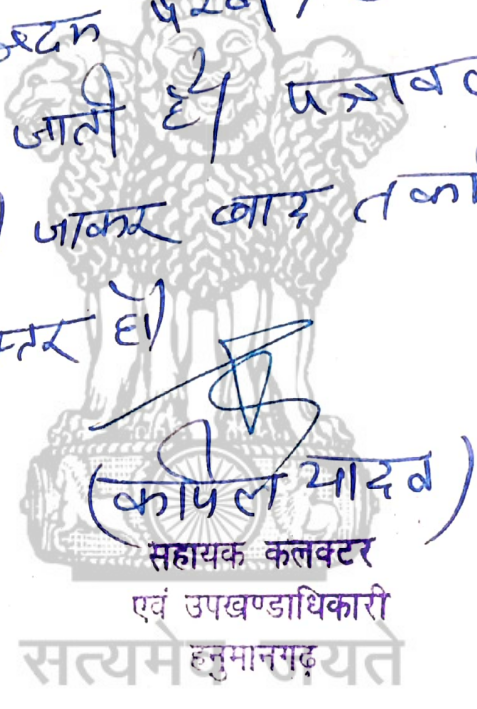 जाती है। पत्रावल
जाकर बाद तका
हो।
(कपिल यादव)
सहायक कलक्टर
एवं उपखण्डाधिकारी
हनुमानगढ़
सत्यमेव जयते